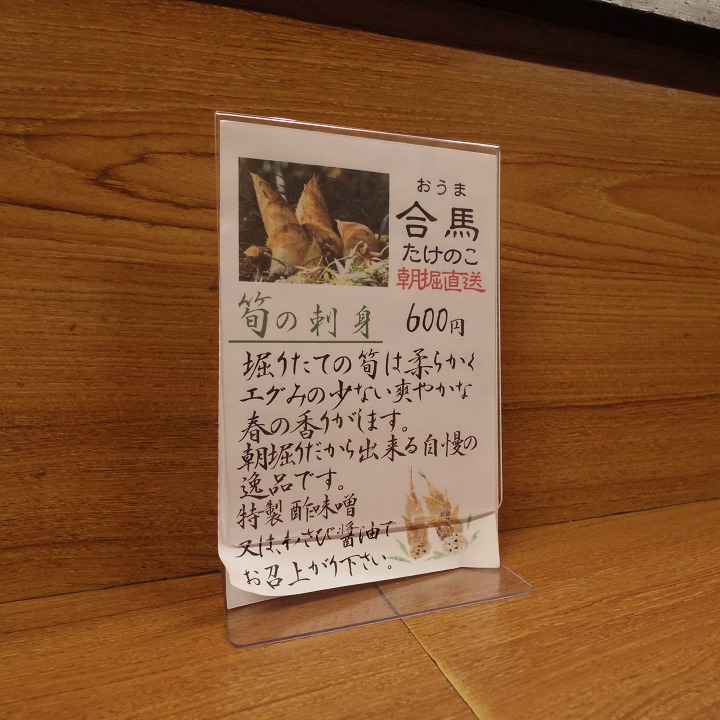 おうま
合馬
たけのこ
朝掘直送
筍の刺身 600円
堀りたての筍は柔らかく
エグみの少ない爽やかな
春の香りがします。
朝堀りだから出来る自慢の
逸品です。
特製酢味噌
又は、わさび醤油で
お召上がり下さい。